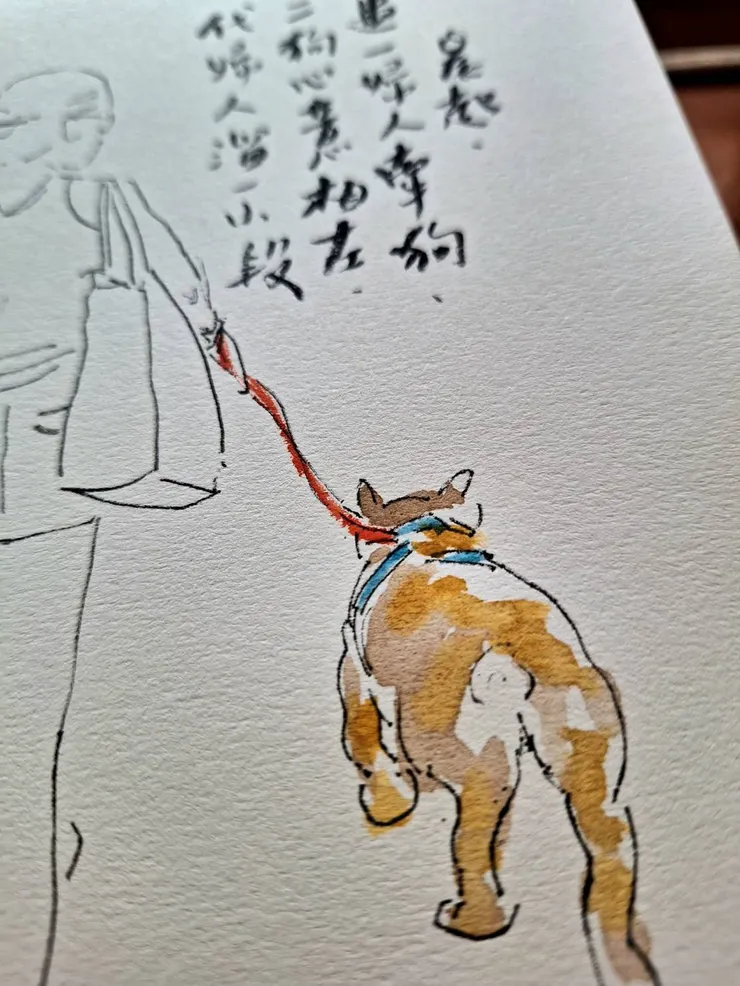 晨起.
一婦人牽狗、
二狗心意相左.
代婦人溜一小段